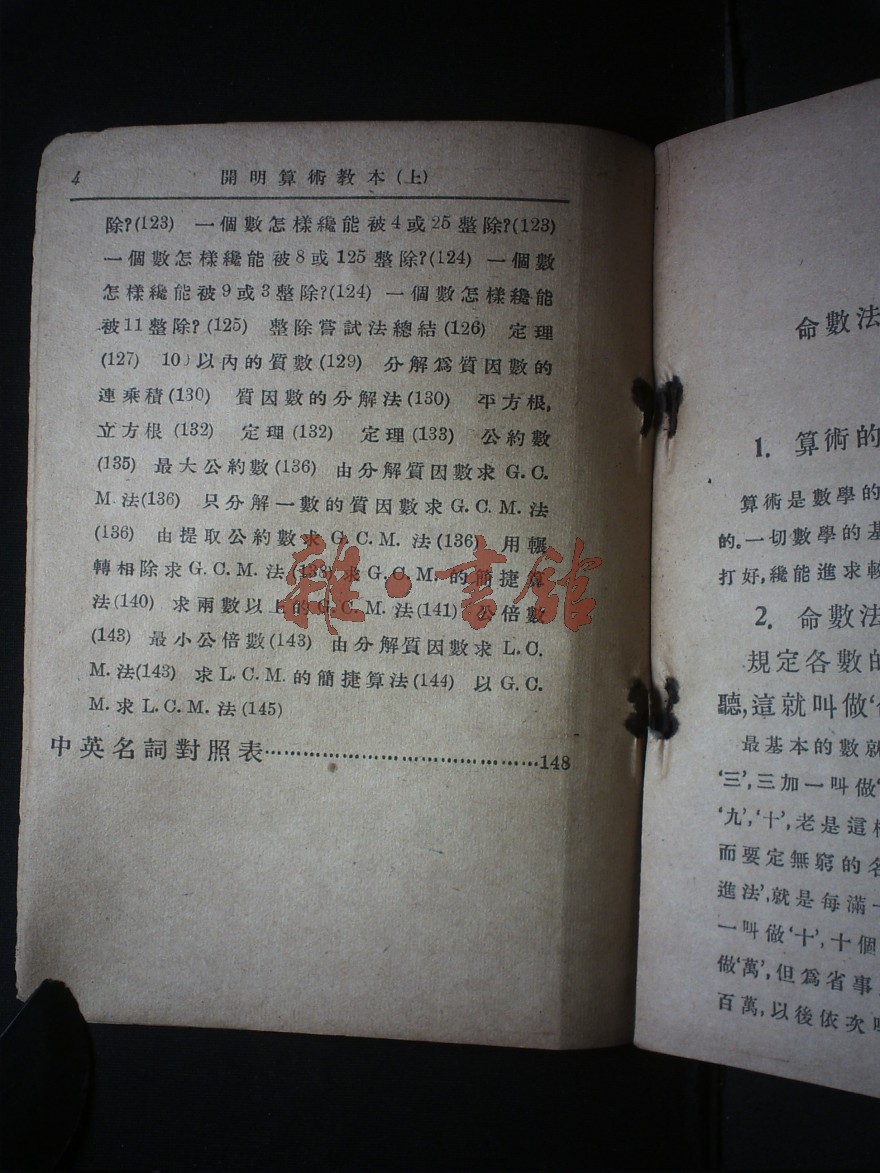 4 開明算術教本(上)
除?(123) 一個數怎樣纔能被4或25整除?(123)
一個數怎樣纔能被8或125整除?(124) 一個數
怎樣纔能被9或3整除?(124) 一個數怎樣纔能
被11整除?(125) 整除嘗試法總結(126) 定理
(127) 10)以內的質數(129) 分解爲質因數的
連乘積(130) 質因數的分解法(130) 平方根,
立方根(132) 定理(132) 定理(133) 公約數
(135) 最大公約數(136) 由分解質因數求G.C.
M.法(136) 只分解一數的質因數求G.C.M.法
(136) 由提取公約數求G.C.M.法(136) 用輾
轉相除求G.C.M.法(138) 求G.C.M.的簡捷算
法(140) 求兩數以上的G.C.M.法(141) 公倍數
(143) 最小公倍數(143) 由分解質因數求L.C.
M.法(143) 求L.C.M.的簡捷算法(144) 以G.C.
M.求L.C.M.法(145)
中英名詞對照表……………………………148
雜·書館
命數法
1. 算術的
算術是數學的
的。一切數學的基
打好,纔能進求較
2. 命數法
規定各數的
聽,這就叫做‘
最基本的數就
‘三’,三加一叫做‘
‘九’,‘十’,老是這樣
而要定無窮的名
進法’,就是每滿
一叫做‘十’,十個
做‘萬’,但爲省事
百萬,以後依次